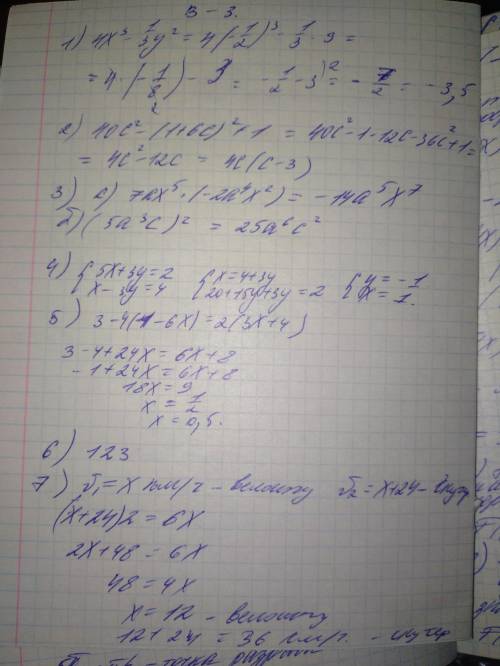 В - 3.
1) 4x³ - 1/3 y² = 4(-1/2)³ - 1/3 · 9 =
= 4 · (-1/8) - 3 = -1/2 - 3 = -7/2 = -3,5
2) 40c² - (1+6c)² + 1 = 40c² - 1 - 12c - 36c² + 1 =
= 4c² - 12c = 4c(c - 3)
3) а) 7ax⁵ · (-2a⁴x²) = -14a⁵x⁷
б) (5a³c)² = 25a⁶c²
4) { 5x+3y=2 { x=4+3y { y=-1
x-3y=4 20+15y+3y=2 x=1.
5) 3-4(1-6x)=2(3x+4)
3-4+24x=6x+8
-1+24x=6x+8
18x=9
x=1/2
x=0,5.
6) 123
7) v₁=x км/ч - велош v₂=x+24 - скутер
(x+24)2=6x
2x+48=6x
48=4x
x=12 - велош
12+24=36 км/ч. - скутер
точка